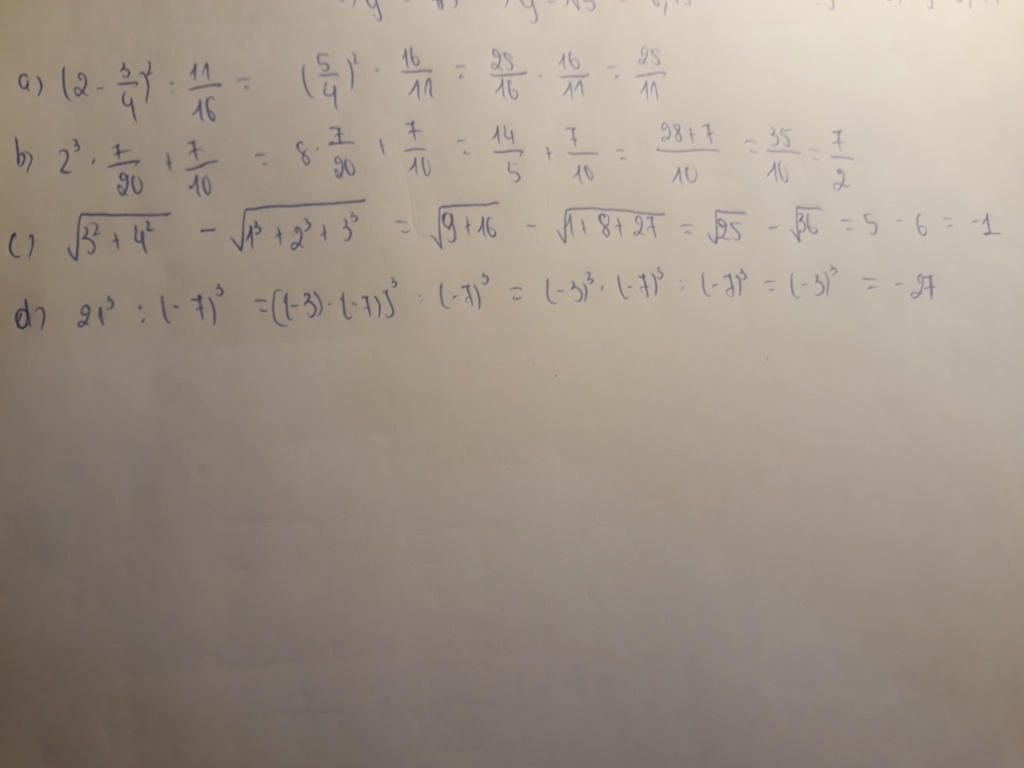 a) (2 - 3/4)² : 11/16 = (5/4)² · 16/11 = 25/16 · 16/11 = 25/11
b) 2³ · 7/20 + 7/10 = 8 · 7/20 + 7/10 = 14/5 + 7/10 = 28+7/10 = 35/10 = 7/2
c) √3² + 4² - √1³ + 2³ + 3³ = √9+16 - √1+8+27 = √25 - √36 = 5 - 6 = -1
d) 21³ : (-7)³ = [(-3) · (-7)]³ : (-7)³ = (-3)³ · (-7)³ : (-7)³ = (-3)³ = -27